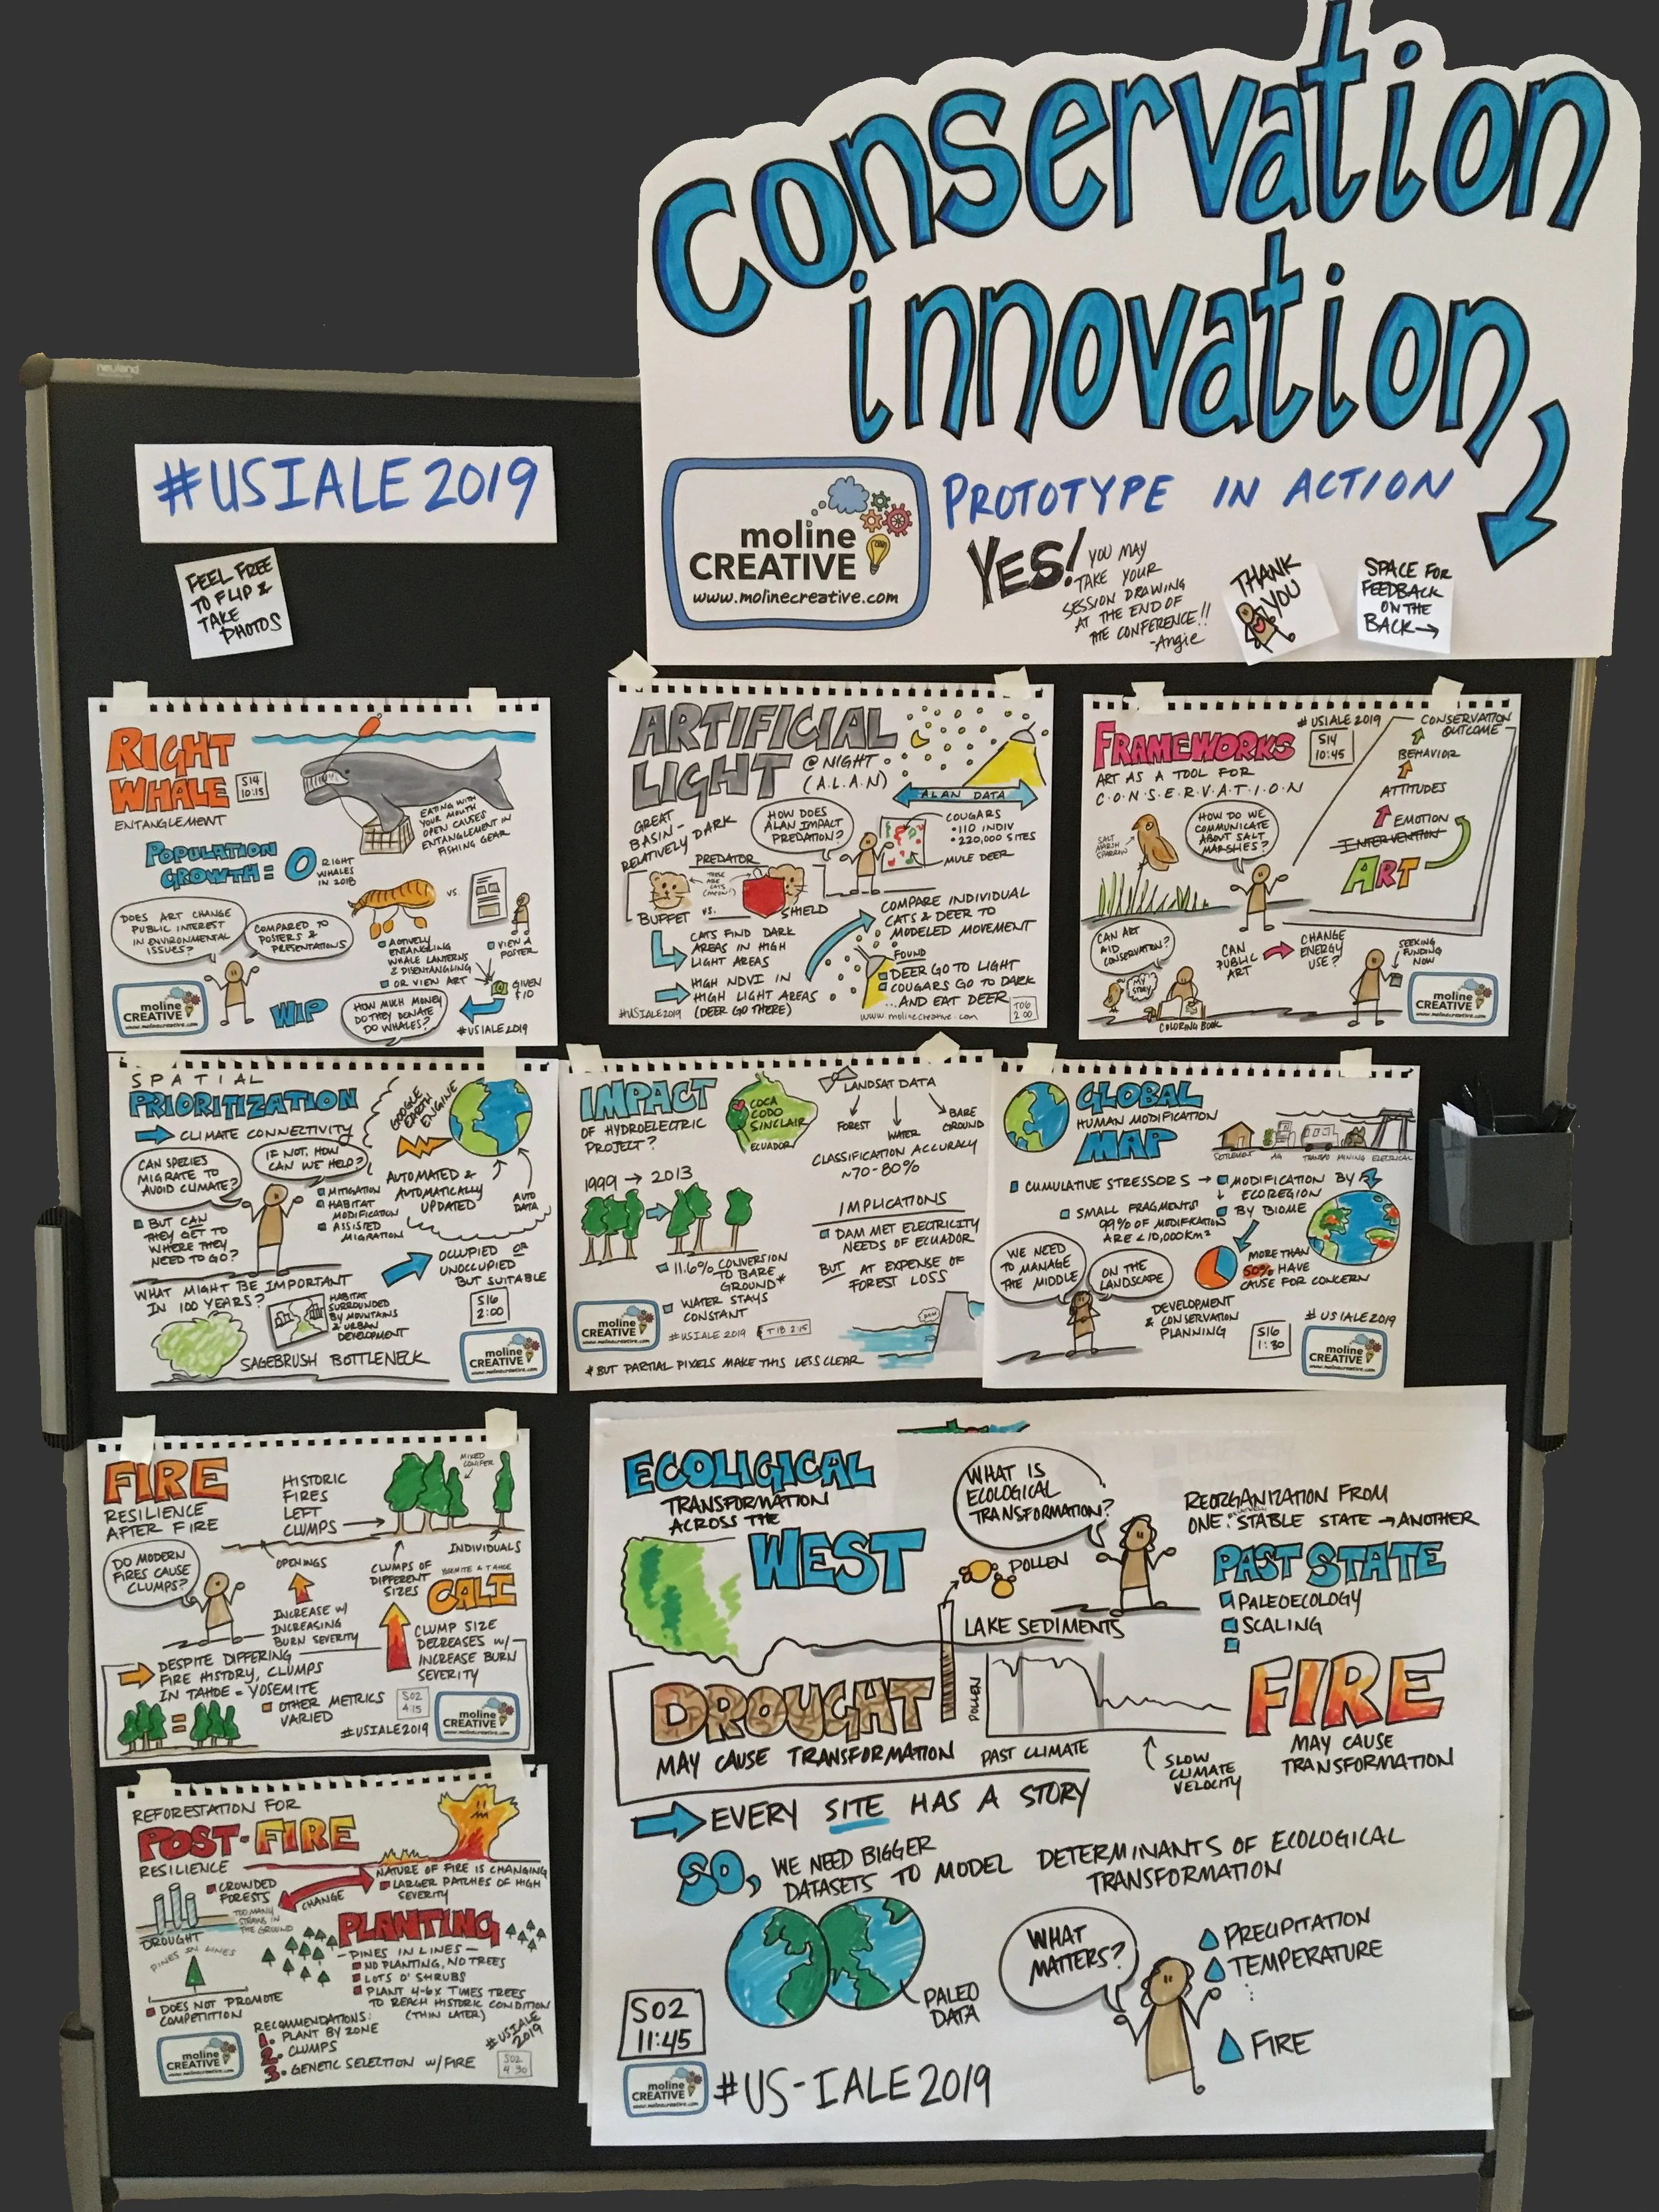 conservation
innovation
neuland
#USIALE2019
FEEL FREE
TO FLIP &
TAKE
PHOTOS
moline
CREATIVE
www.molinecreative.com
PROTOTYPE IN ACTION
YES!
YOU MAY
TAKE YOUR
SESSION DRAWING
AT THE END OF
THE CONFERENCE!!
-Angie
THANK
YOU
SPACE FOR
FEEDBACK
ON THE
BACK→
RIGHT
WHALE
S14
10:15
ENTANGLEMENT
EATING WITH
YOUR MOUTH
OPEN CAUSES
ENTANGLEMENT IN
FISHING GEAR
POPULATION
GROWTH = 0
RIGHT
WHALES
IN 2018
DOES ART CHANGE
PUBLIC INTEREST
IN ENVIRONMENTAL
ISSUES?
COMPARED TO
POSTERS &
PRESENTATIONS
VS.
ACTIVELY
ENTANGLING
WHALE LANTERNS
& DISENTANGLING
OR VIEW ART
VIEW A
POSTER
GIVEN
$10
WIP
HOW MUCH MONEY
DO THEY DONATE
DO WHALES?
#USIALE2019
moline
CREATIVE
www.molinecreative.com
ARTIFICIAL
LIGHT
@ NIGHT
(A.L.A.N)
ALAN DATA
GREAT
BASIN-
RELATIVELY DARK
HOW DOES
ALAN IMPACT
PREDATION?
COUGARS
•110 INDIV
•220,000 SITES
MULE DEER
PREDATOR
THESE
ARE
CATS
(MEOW!)
BUFFET VS. SHIELD
CATS FIND DARK
AREAS IN HIGH
LIGHT AREAS
HIGH NDVI IN
HIGH LIGHT AREAS
(DEER GO THERE)
COMPARE INDIVIDUAL
CATS & DEER TO
MODELED MOVEMENT
FOUND
DEER GO TO LIGHT
COUGARS GO TO DARK
...AND EAT DEER
#USIALE2019
www.molinecreative.com
T06
2:00
FRAMEWORKS
#USIALE2019
S14
10:45
ART AS A TOOL FOR
C·O·N·S·E·R·V·A·T·I·O·N
CONSERVATION
OUTCOME
BEHAVIOR
ATTITUDES
EMOTION
INTERVENTION
ART
SALT
MARSH
SPARROW
HOW DO WE
COMMUNICATE
ABOUT SALT
MARSHES?
CAN ART
AID
CONSERVATION?
MY
STORY
COLORING BOOK
CAN
PUBLIC
ART
CHANGE
ENERGY
USE?
SEEKING
FUNDING
NOW
moline
CREATIVE
www.molinecreative.com
SPATIAL
PRIORITIZATION
CLIMATE CONNECTIVITY
GOOGLE
EARTH
ENGINE
CAN SPECIES
MIGRATE TO
AVOID CLIMATE?
IF NOT, HOW
CAN WE HELP?
MITIGATION
HABITAT
MODIFICATION
ASSISTED
MIGRATION
AUTOMATED &
AUTOMATICALLY
UPDATED
AUTO
DATA
BUT CAN
THEY GET TO
WHERE THEY
NEED TO GO?
OCCUPIED OR
UNOCCUPIED
BUT SUITABLE
WHAT MIGHT BE IMPORTANT
IN 100 YEARS?
HABITAT
SURROUNDED
BY MOUNTAINS
& URBAN
DEVELOPMENT
S16
2:00
SAGEBRUSH BOTTLENECK
moline
CREATIVE
www.molinecreative.com
IMPACT
OF HYDROELECTRIC
PROJECT?
COCA
CODO
SINCLAIR
ECUADOR
LANDSAT DATA
FOREST
WATER
BARE
GROUND
CLASSIFICATION ACCURACY
~70-80%
1999 → 2013
IMPLICATIONS
DAM MET ELECTRICITY
NEEDS OF ECUADOR
BUT AT EXPENSE OF
FOREST LOSS
11.6% CONVERSION
TO BARE
GROUND*
WATER STAYS
CONSTANT
#USIALE2019
T1B 2:15
moline
CREATIVE
www.molinecreative.com
*BUT PARTIAL PIXELS MAKE THIS LESS CLEAR
GLOBAL
HUMAN MODIFICATION
MAP
SETTLEMENT AG TRANSPO MINING ELECTRICAL
CUMULATIVE STRESSORS → MODIFICATION BY
ECOREGION
BY BIOME
SMALL FRAGMENTS
99% OF MODIFICATION
ARE <10,000KM²
WE NEED
TO MANAGE
THE MIDDLE
ON THE
LANDSCAPE
MORE THAN
50% HAVE
CAUSE FOR CONCERN
DEVELOPMENT
& CONSERVATION
PLANNING
S16
1:30
#USIALE2019
moline
CREATIVE
www.molinecreative.com
FIRE
RESILIENCE
AFTER FIRE
HISTORIC
FIRES
LEFT
CLUMPS
MIXED
CONIFER
INDIVIDUALS
OPENINGS
DO MODERN
FIRES CAUSE
CLUMPS?
CLUMPS OF
DIFFERENT
SIZES
YOSEMITE & TAHOE
CALI
INCREASE W/
INCREASING
BURN SEVERITY
CLUMP SIZE
DECREASES W/
INCREASE BURN
SEVERITY
DESPITE DIFFERING
FIRE HISTORY, CLUMPS
IN TAHOE = YOSEMITE
OTHER METRICS
VARIED
S02
4:15
#USIALE2019
moline
CREATIVE
www.molinecreative.com
REFORESTATION FOR
POST-FIRE
RESILIENCE
NATURE OF FIRE IS CHANGING
LARGER PATCHES OF HIGH
SEVERITY
CROWDED
FORESTS
CHANGE
TOO MANY
STRAWS IN
THE GROUND
DROUGHT
PINES IN LINES
DOES NOT PROMOTE
COMPETITION
PLANTING
—PINES IN LINES—
NO PLANTING, NO TREES
LOTS O' SHRUBS
PLANT 4-6X TIMES TREES
TO REACH HISTORIC CONDITION
(THIN LATER)
RECOMMENDATIONS:
1. PLANT BY ZONE
2. CLUMPS
3. GENETIC SELECTION W/FIRE
#USIALE
2019
S02
4:30
moline
CREATIVE
www.molinecreative.com
ECOLIGICAL
TRANSFORMATION
ACROSS THE
WEST
WHAT IS
ECOLOGICAL
TRANSFORMATION?
REORGANIZATION FROM
ONE STABLE STATE → ANOTHER
POLLEN
PAST STATE
PALEOECOLOGY
SCALING
LAKE SEDIMENTS
DROUGHT
MAY CAUSE TRANSFORMATION
POLLEN
PAST CLIMATE
SLOW
CLIMATE
VELOCITY
FIRE
MAY CAUSE
TRANSFORMATION
EVERY SITE HAS A STORY
SO, WE NEED BIGGER
DATASETS TO MODEL DETERMINANTS OF ECOLOGICAL
TRANSFORMATION
PALEO
DATA
WHAT
MATTERS?
PRECIPITATION
TEMPERATURE
FIRE
S02
11:45
moline
CREATIVE
www.molinecreative.com
#US-IALE2019